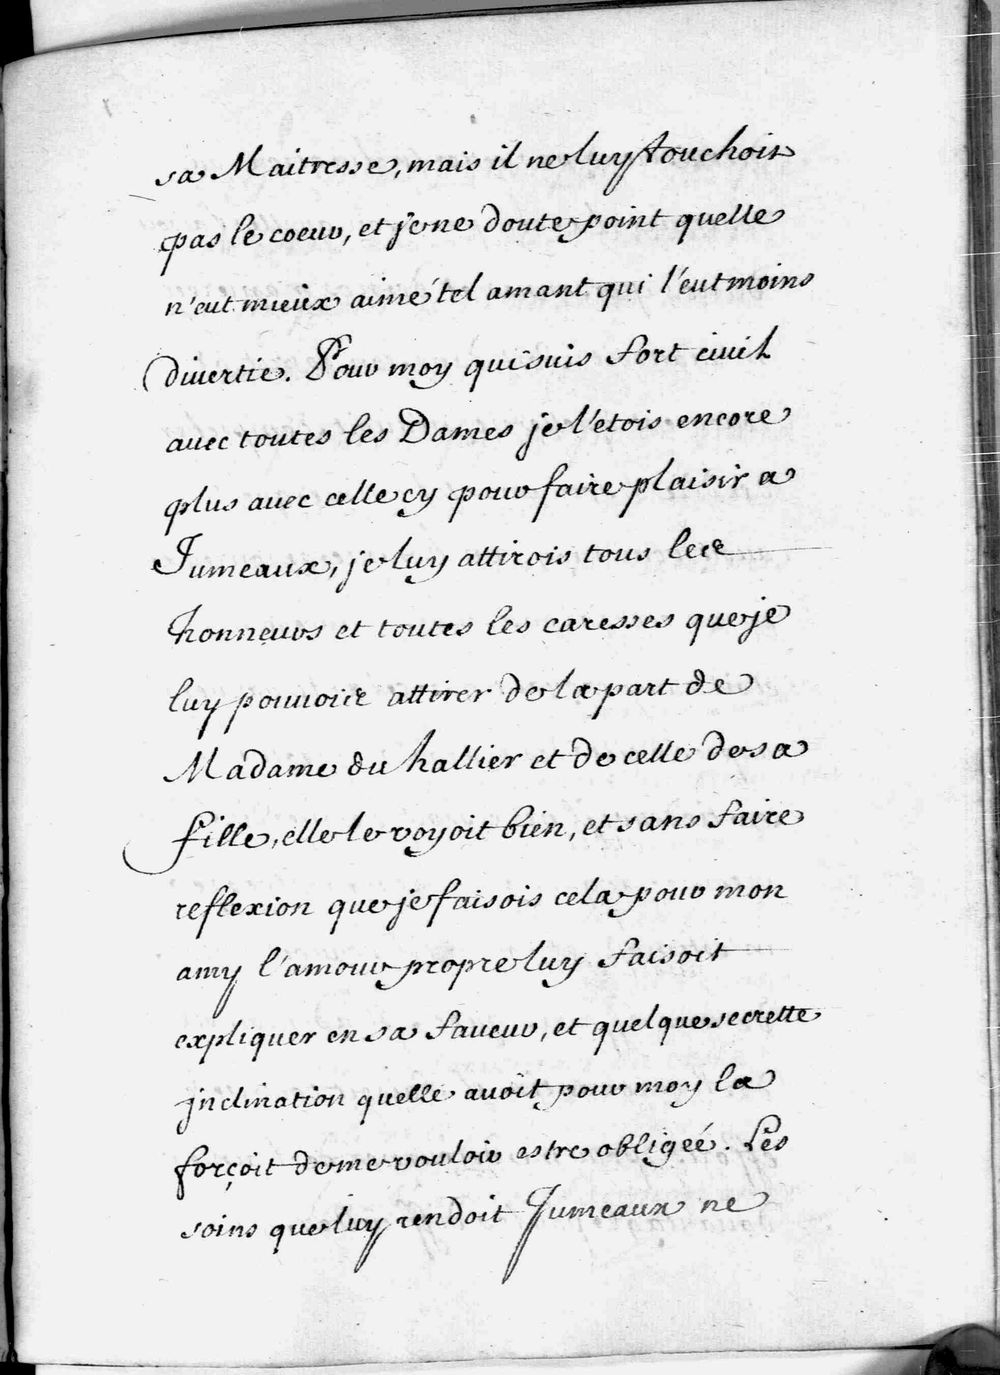 sa Maitresse, mais il ne luy touchoit
pas le coeur, et je ne doute point quelle
n'eut mieux aimé tel amant qui l'eut moins
divertie. Pour moy qui suis fort civil
avec toutes les Dames je l'etois encore
plus avec celle cy pour faire plaisir a
Jumeaux, je luy attirois tous les
honneurs et toutes les caresses que je
luy pouvois attirer de la part de
Madame du hallier et de celle de sa
fille, elle le voyoit bien, et sans faire
reflexion que je faisois cela pour mon
amy l'amour propre luy faisoit
expliquer en sa faveur, et quelque secrette
inclination quelle avoit pour moy la
forçoit de me vouloir estre obligeé. Les
soins que luy rendoit Jumeaux ne